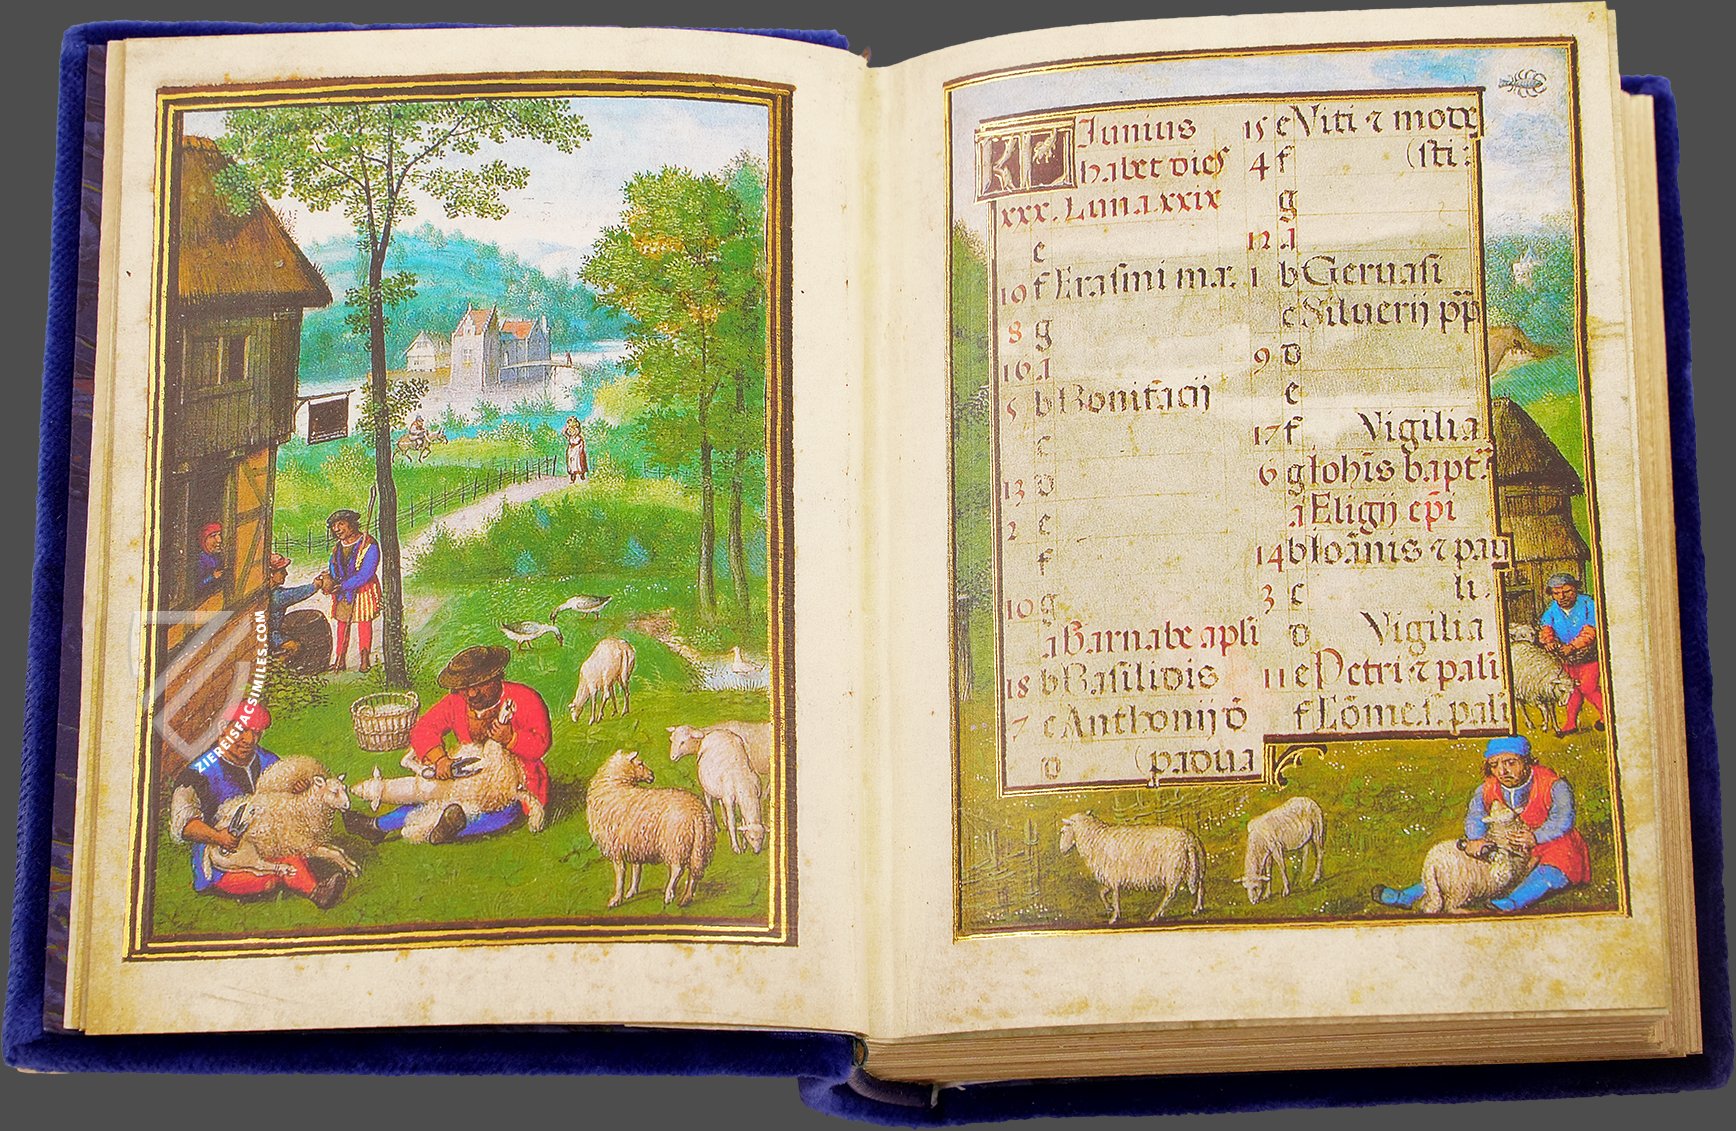 KL Junius
habet dies
xxx. Luna. xxix
e
10 f Erasmi mar.
8 g
16 A
5 b Bonifacij
c
13 d
2 e
f
10 g
A Barnabe apli
18 b Basilidis
7 c Anthonij d
d (padua
15 e Viti ⁊ mode
4 f (sti:
g
12 A
1 b Geruasi
c Siluerij pp
9 d
e
17 f Vigilia
6 g Iohis bapt.
A Eligij epi
14 b Ioanis ⁊ pau
3 c li.
d Vigilia
11 e Petri ⁊ pali
f Come. pali
ZIEREISFACSIMILES.COM